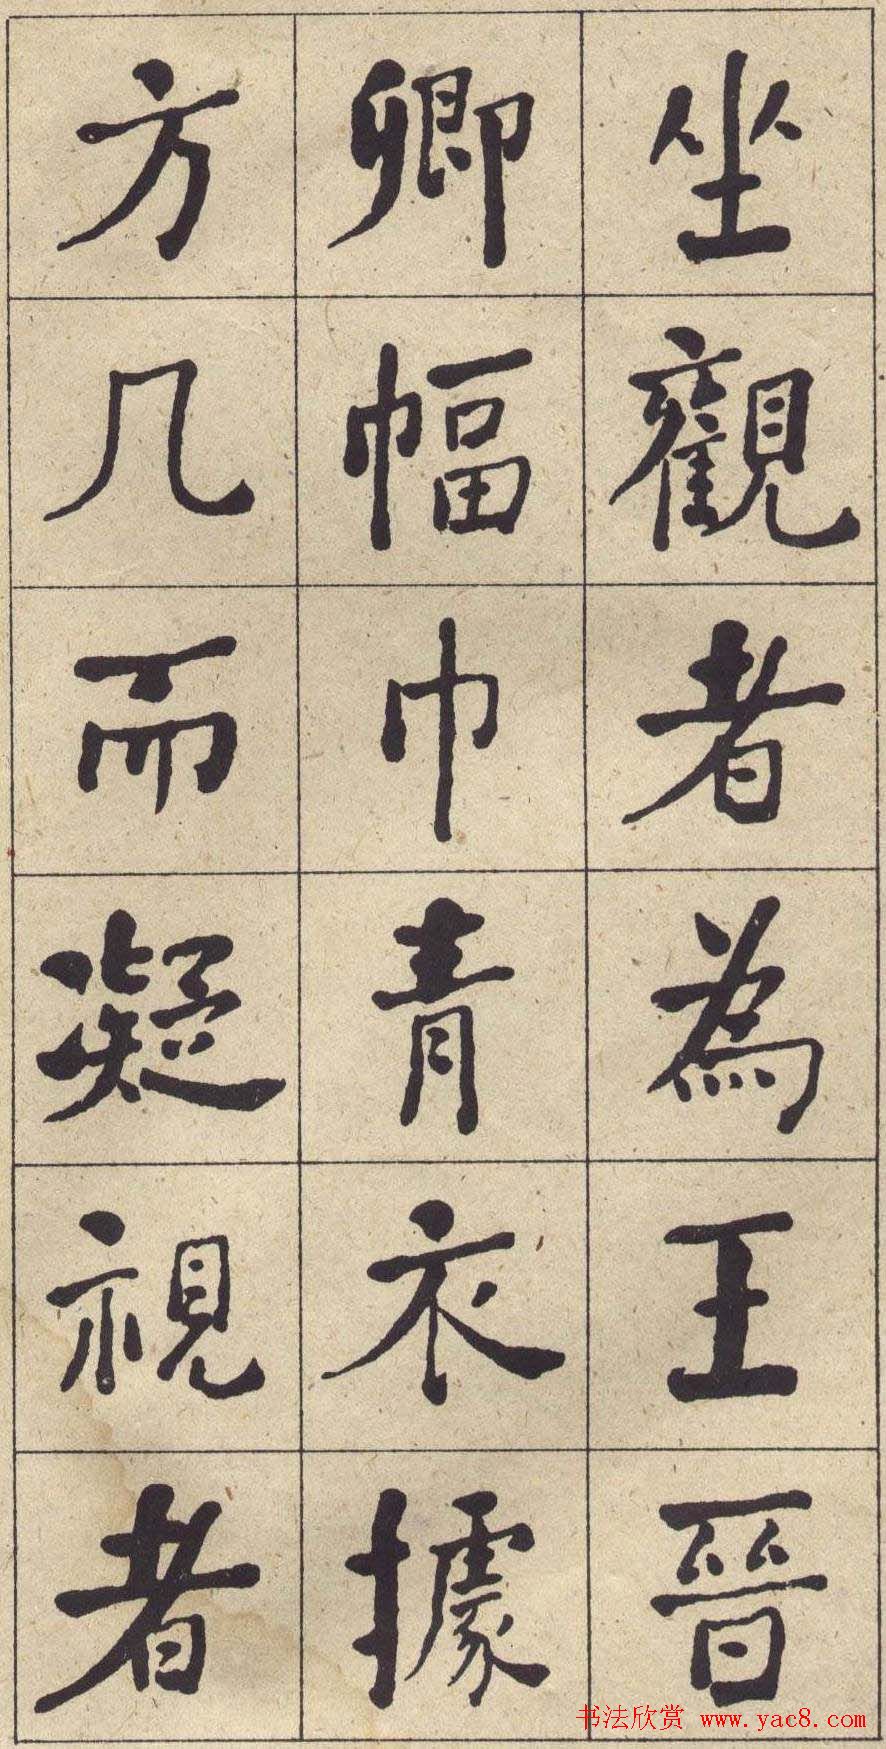 坐觀者為王晉
卿幅巾青衣據
方几而凝視者
书法欣赏 www.yac8.com